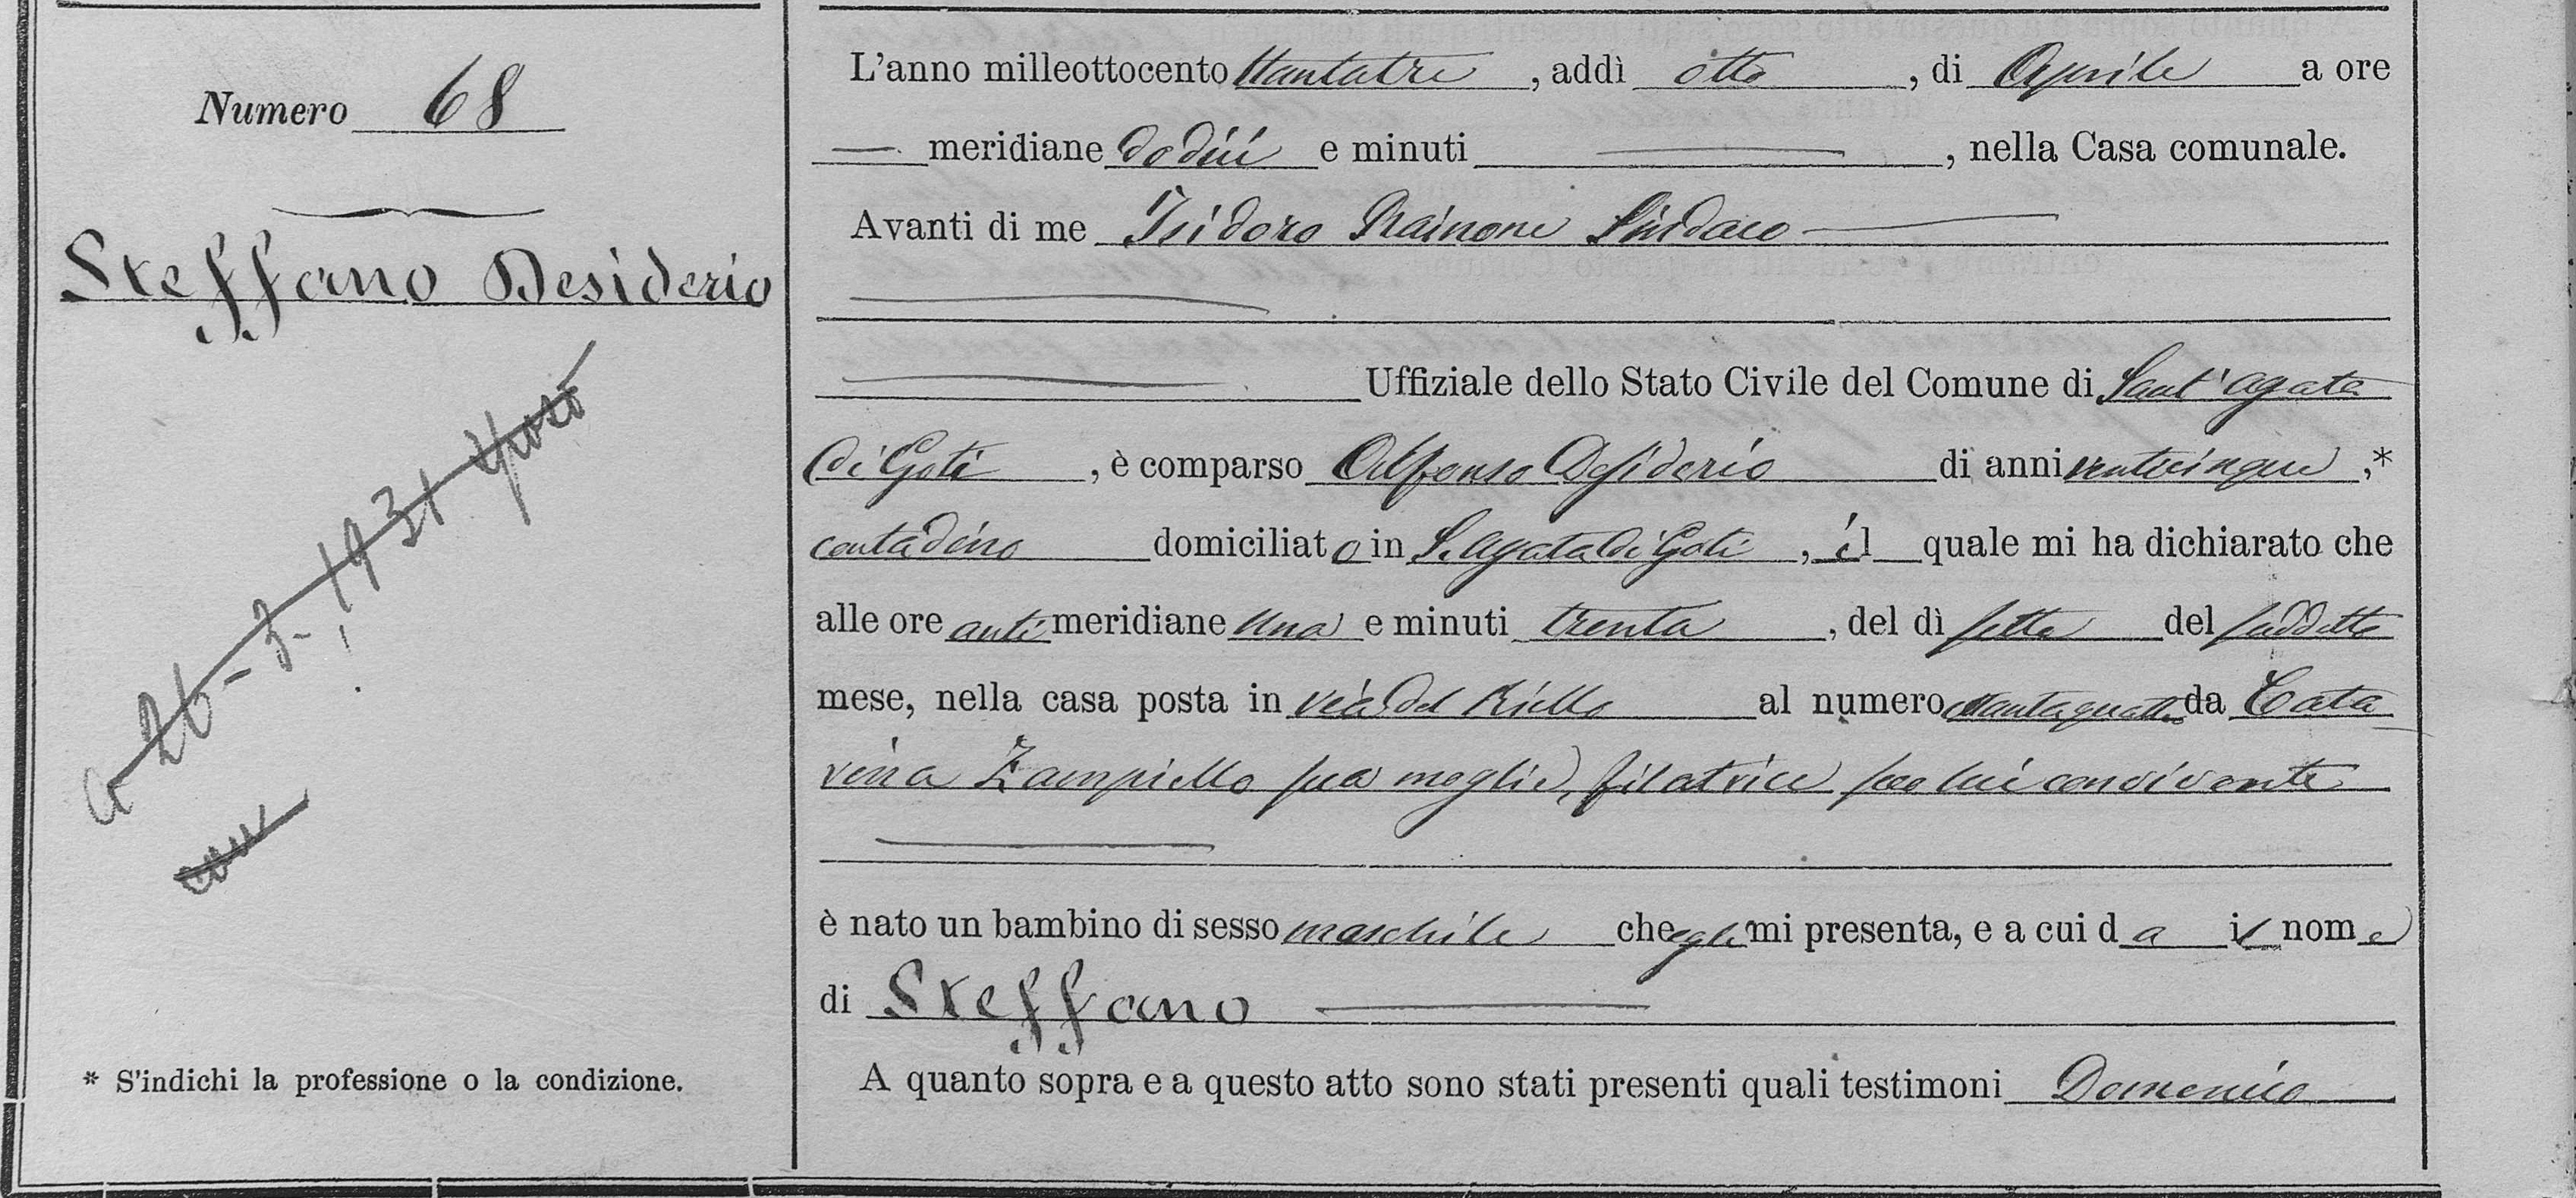 Numero 68
Steffano Desiderio
26-3-1931
* S'indichi la professione o la condizione.
L'anno milleottocento ottantatre, addì otto, di Aprile a ore
— meridiane dodici e minuti —, nella Casa comunale.
Avanti di me Isidoro Rainone Sindaco —
Uffiziale dello Stato Civile del Comune di Sant'Agata
di Goti, è comparso Alfonso Desiderio di anni venticinque,*
contadino domiciliato in S. Agata di Goti, il quale mi ha dichiarato che
alle ore anti meridiane una e minuti trenta, del dì sette del suddetto
mese, nella casa posta in via del Riello al numero ottantaquattro da Cata
rina Zampiello sua moglie, filatrice seco lui convivente
è nato un bambino di sesso maschile che egli mi presenta, e a cui da il nome
di Steffano —
A quanto sopra e a questo atto sono stati presenti quali testimoni Domenico